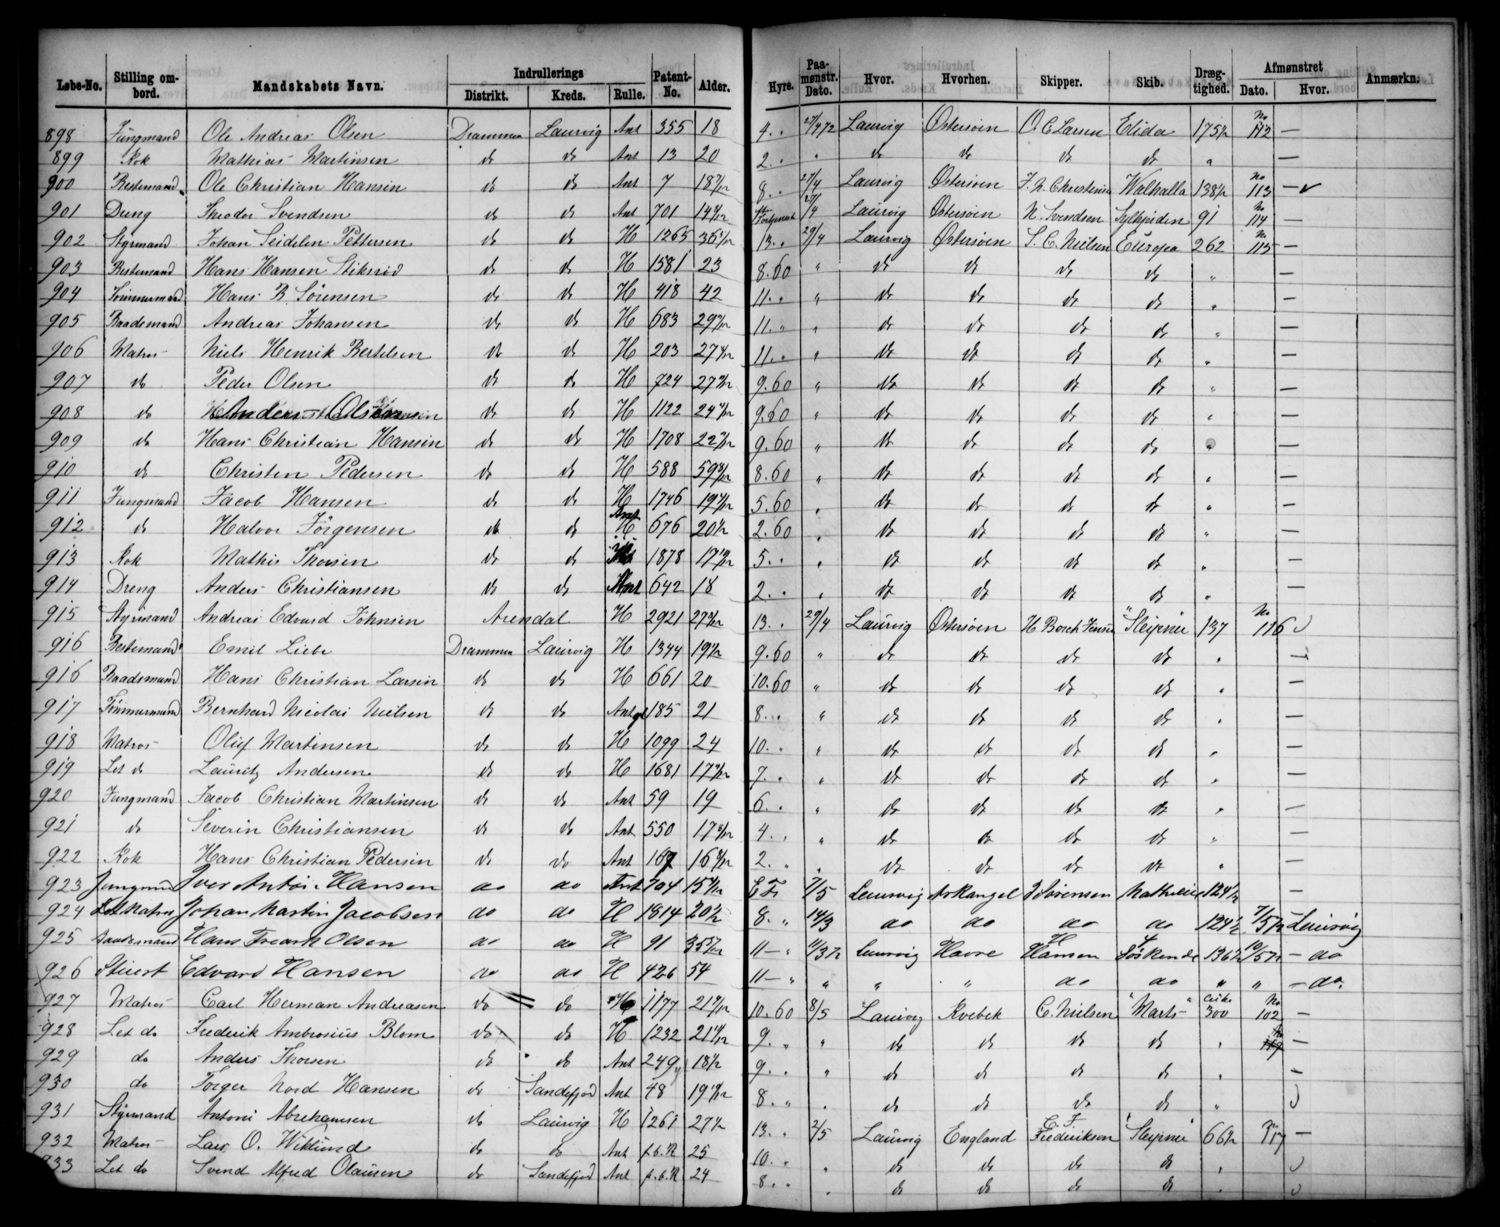 Løbe-No. Stilling ombord. Mandskabets Navn. Indrullerings Distrikt. Kreds. Rulle. Patent-No. Alder. Hyre. Paamønstr. Dato. Hvor. Hvorhen. Skipper. Skib. Drægtighed. Afmønstret Dato. Hvor. Anmærkn.
898 Jungmand Ole Andreas Olsen Drammen Laurvig Ant 355 18 4 " 27/4 72 Laurvig Østersøen O. C. Larsen Elida 175 1/2 No 112 —
899 Kok Mathias Martinsen do do Ant 13 20 2 " " do do do do " —
900 Bestemand Ole Christian Hansen do do Ant 7 8 " 27/4 Laurvig Østersøen Walhalla 138 1/2 No 113 —
901 Dreng Theodor Svendsen do do Ant 701 Laurvig Østersøen N. Svendsen 91 No 114 —
902 Styrmand Johan Seidelin Pettersen do do H 1265 13 " 29/4 Laurvig Østersøen S. C. Nielsen Europa 262 No 115 —
903 Bestemand Hans Hansen do do H 1581 23 8.60 " do do do do " —
904 Tømmermand Hans B. Sørensen do do H 418 42 11 " " do do do do " —
905 Baadsmand Andreas Johansen do do H 683 11 " " do do do do " —
906 Matros Niels Henrik Bertelsen do do H 203 11 " " do do do do " —
907 do Peder Olsen do do H 724 9.60 " do do do do " —
908 do do do H 1122 9.60 " do do do do " —
909 do Hans Christian Hansen do do H 1708 9.60 " do do do do —
910 do Christen Pedersen do do H 588 8.60 " do do do do " —
911 Jungmand Jacob Hansen do do H 1746 5.60 " do do do do " —
912 do Halvor Jørgensen do do Ant 676 2.60 " do do do do " —
913 Kok Mathis Thorsen do do 1878 5 " " do do do do " —
914 Dreng Anders Christiansen do do Ant 642 18 2 " " do do do do " —
915 Styrmand Andreas Edvard Johnsen Arendal H 2921 13 " 29/4 Laurvig Østersøen H. Borch "Sleipner 137 No 116
916 Bestemand Emil Lieb Drammen Laurvig H 1344 9.60 " do do do do " —
916 Baadsmand Hans Christian Larsen do do H 661 20 10.60 " do do do do " —
917 Tømmermand Bernhard Nicolai Nielsen do do Ant 185 21 8 " " do do do do " —
918 Matros Oluf Martinsen do do H 1099 24 10 " " do do do do " —
919 Let do Lauritz Andersen do do H 1681 7 " " do do do do " —
920 Jungmand Jacob Christian Martinsen do do Ant 59 19 6 " " do do do do " —
921 do Severin Christiansen do do Ant 550 4 " " do do do do " —
922 Kok Hans Christian Pedersen do do Ant 167 2 " " do do do do " —
923 Jungmd Iver Anton Hansen do do Ant 704 7/5 Laurvig Arkangel Sørensen Mathilde 124 1/2
924 Let Matros Johan Martin Jacobsen do do H 1814 20 8 " 14/3 do do do do 124 1/2 7/5 72 Laurvig
925 Baadsmand Hans Fredrik Olsen do do H 91 11 — " 11/3 72 Laurvig Havre H Hansen 4 Søskende 136 1/2 10/5 72 — do
926 Stuert Edvard Hansen do do H 426 54 11 — " " " " do do " " — do.
927 Matros Carl Herman Andreasen do do H 1177 10.60 8/5 Laurvig Kvebek C. Nielsen "Marts" cirka 300 No 102 —
928 Let do Frederik Ambrosius Blom do do H 1232 9 " " do do do do "
929 do Anders Thorsen do do Ant 249 18 1/2 9 " do do do do " —
930 do Torger Nord Hansen do Sandefjord Ant 48 8 " " do do do do "
931 Styrmand Antoni Abrahamsen do Laurvig H 1261 27 1/2 13 " 2/5 Laurvig England C. F. Frederiksen "Sleipner 66 1/2 No 117 —
932 Matros Lars O. Wiklund do do Ant 25 10 " " do do do do "
933 Let do Svend Alfred Olausen do Sandefjord Ant 24 8 " " do do do do "